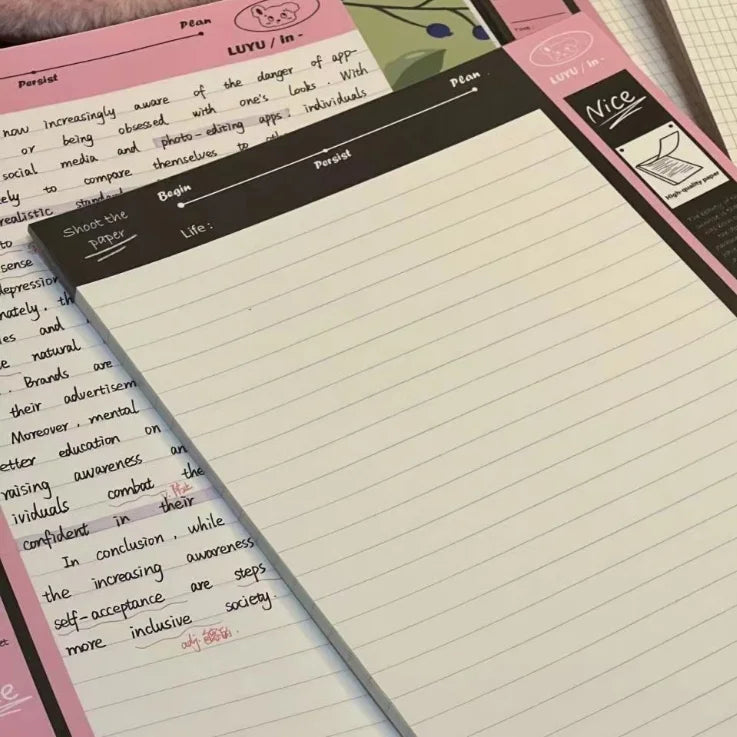 Plan
Persist
LUYU / In -
now increasingly aware of the danger of app-
or being obsessed with one's looks. With
social media and photo-editing apps, individuals
ely to compare themselves to
realistic standard
to
sense
depression
nately, th
es and
e natural
. Brands are
their advertisem
Moreover, mental
etter education on
raising awareness an
ividuals combat the
confident in their
In conclusion, while
the increasing awareness
self-acceptance are steps
more inclusive society.
adj.
Shoot the
paper
Begin
Persist
Plan
Life :
LUYU / In -
Nice
High-quality paper